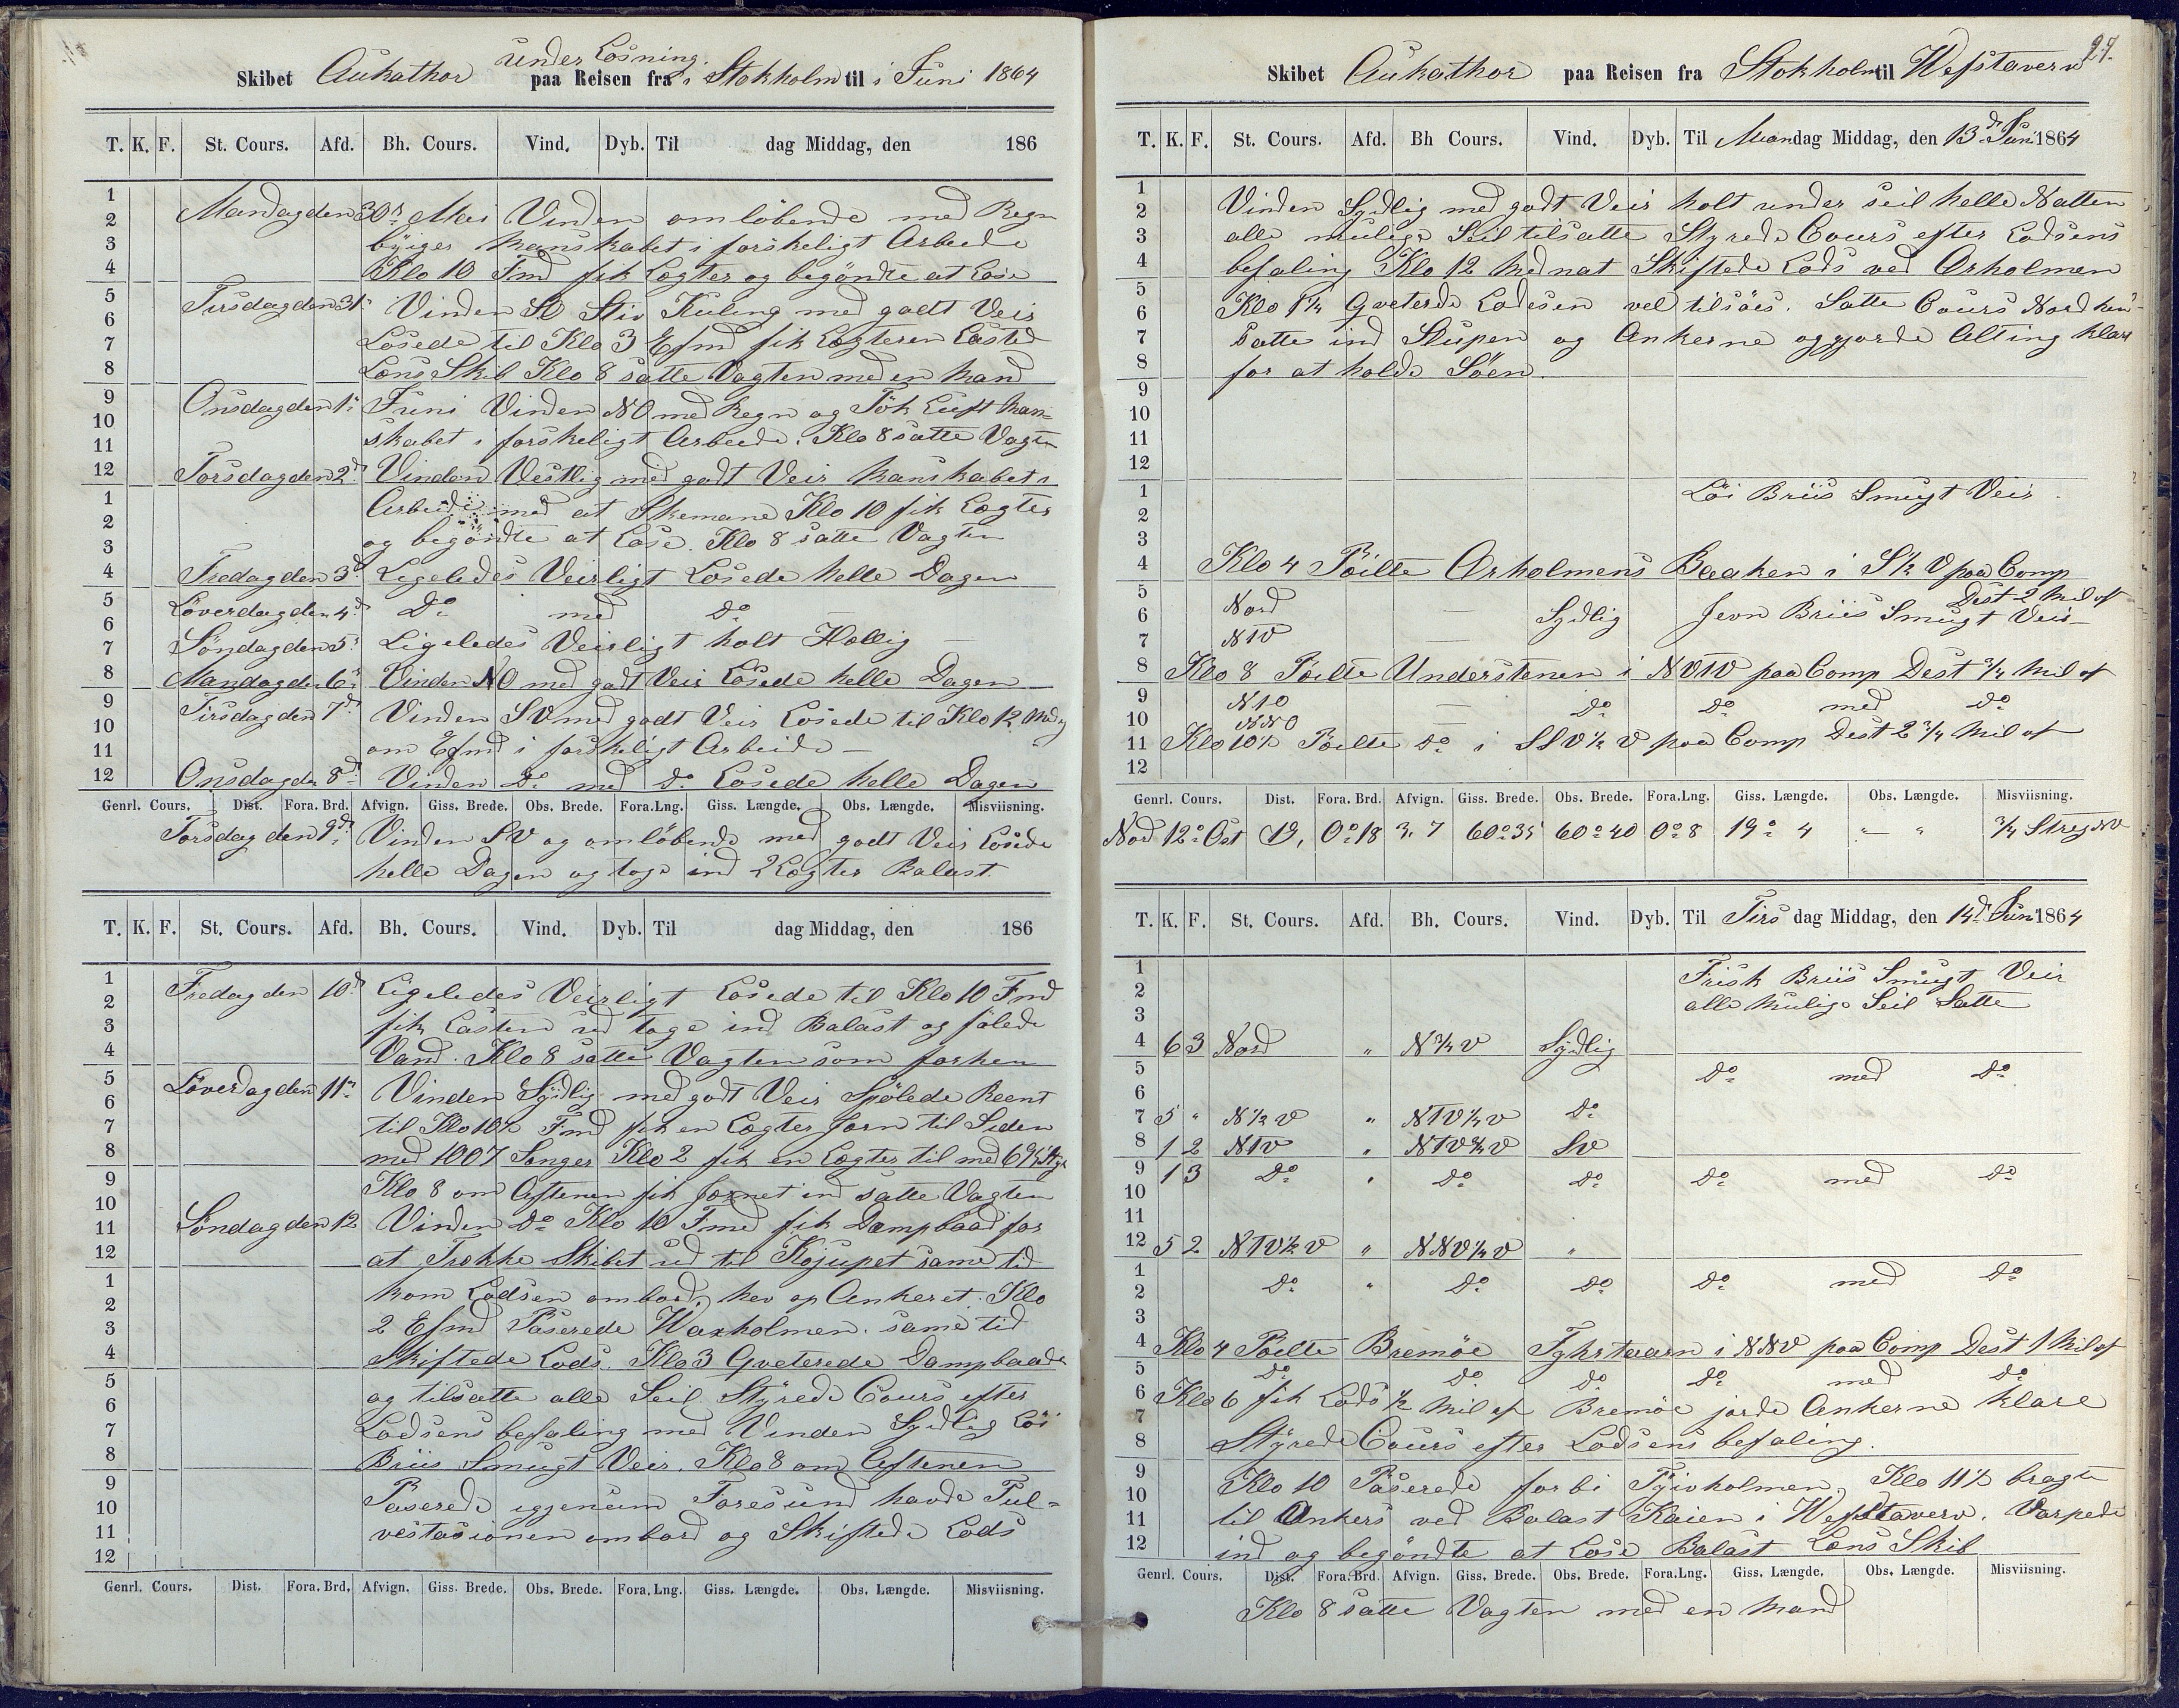 under Losning
Skibet Aukathor paa Reisen fra i Stokholm til i Juni 1864
T. K. F. St. Cours. Afd. Bh. Cours. Vind. Dyb. Til dag Middag, den 186
1
2
3
4
5
6
7
8
9
10
11
12
1
2
3
4
5
6
7
8
9
10
11
12
Mandag den 30te Mai Vinden omlöbende med Regn
byiger Manskabet i forskeligt Arbeide
Klo 10 Fmd fik Lægter og begöndte at Lose
Tirsdag den 31te Vinden SO Stiv Kuling med godt Veir
Losede til Klo 3 Efmd fik Lægteren Lasted
Læns Skib Klo 8 satte Vagten med en Mand
Onsdag den 1te Juni Vinden NO med Regn og Tök Luft Man-
skabet i forskeligt Arbeide. Klo 8 satte Vagten
Torsdag den 2d Vinden Vestlig med godt Veir Manskabet i
Arbeide med at Skemane Klo 10 fik Lægter
og begöndte at Lose. Klo 8 satte Vagten
Fredag den 3d Ligeledes Veirligt Losede helle Dagen
Löverdag den 4d Do med Do
Söndag den 5te Ligeledes Veirligt holt Hellig
Mandag den 6te Vinden NO med godt Veir Losede helle Dagen
Tirsdag den 7d Vinden SV med godt Veir Losede til Klo 12 Mdag
om Efmd i forskeligt Arbeide
Onsdag den 8d Vinden Do med Do Losede helle Dagen
Genrl. Cours. Dist. Fora. Brd. Afvign. Giss. Brede. Obs. Brede. Fora. Lng. Giss. Længde. Obs. Længde. Misviisning.
Torsdag den 9d Vinden SV og omlöbende med godt Veir Losede
helle Dagen og toge ind 2 Lægter Balast
T. K. F. St. Cours. Afd. Bh. Cours. Vind. Dyb. Til dag Middag, den 186
1
2
3
4
5
6
7
8
9
10
11
12
1
2
3
4
5
6
7
8
9
10
11
12
Fredag den 10d Ligeledes Veirligt Losede til Klo 10 Fmd
fik Lasten ud toge ind Balast og fölede
Vand. Klo 8 satte Vagten som forhen
Löverdag den 11te Vinden Sydlig med godt Veir Spölede Reent
til Klo 10½ Fmd fik en Lægter Jærn til Siden
med 1007 Stænger Klo 2 fik en Lægter til med
Klo 8 om Aftenen fik Jærnet ind satte Vagten
Söndag den 12 Vinden Do Klo 10 Fmd fik Dampbaad for
at Trække Skibet ud til samme tid
kom Lodsen ombord, hev op Ankeret. Klo
2 Efmd Paserede Waxholmen. samme tid
Skiftede Lods. Klo 3 Qveterede Dampbaade
og tilsatte alle Seil. Styrede Cours efter
Lodsens befaling med Vinden Sydlig Löi
Briis Smugt Veir. Klo 8 om Aftenen
Paserede iggjenem Foresund havde Tul-
vestasionen ombord og Skiftede Lods
Genrl. Cours. Dist. Fora. Brd. Afvign. Giss. Brede. Obs. Brede. Fora. Lng. Giss. Længde. Obs. Længde. Misviisning.
27.
Skibet Aukathor paa Reisen fra Stokholm til Wefstaverv
T. K. F. St. Cours. Afd. Bh Cours. Vind. Dyb. Til Mandag Middag, den 13d Juni 1864
1
2
3
4
5
6
7
8
9
10
11
12
1
2
3
4
5
6
7
8
9
10
11
12
Vinden Sydlig med godt Veir holt under seil helle Natten
alle mulige Seil tilsatte Styrede Cours efter Lodsens
befaling Klo 12 Midnat Skiftede Lods ved Arholmen
Klo 1½ Qveterede Lodesen vel tilsöes. Satte Cours Nord hen-
satte ind Slupen og Ankerne og gjorde Alting klart
for at holde Söen.
Löi Briis Smugt Veir
Klo 4 Pöilte Arholmens Baaken i S½V paa Comp
Dest 2 Mil af
Nord — Sydlig Jevn Briis Smugt Veir
NTV —
Klo 8 Pöilte Understenen i NVTV paa Comp Dest ¾ Mil af
NTO — Do Do med Do
NNO
Klo 10½ Pöilte Do i SSV½V paa Comp Dest 2¾ Mil af
Genrl. Cours. Dist. Fora. Brd. Afvign. Giss. Brede. Obs. Brede. Fora. Lng. Giss. Længde. Obs. Længde. Misviisning.
Nord 12o Ost 19, 0o18 3,7 60o35 60o40 0o8 19o 4 " — " ¾ Streg NV
T. K. F. St. Cours. Afd. Bh. Cours. Vind. Dyb. Til Tirs dag Middag, den 14d Juni 1864
1
2
3
4
5
6
7
8
9
10
11
12
1
2
3
4
5
6
7
8
9
10
11
12
Frisk Briis Smugt Veir
alle Mulige Seil Satte
6 3 Nord " N¾V Sydlig
Do med Do
5 " N½V " NTV¼V Do
1 2 NTV " NTV¾V SV
1 3 Do " Do Do Do med Do
5 2 NTV½V " NNV¼V "
Do " Do Do Do med Do
Klo 4 Pöilte Bremöe Fyhrtaarn i NNV paa Comp Dest 1 Mil af
Do Do Do Do med Do
Klo 6 fik Lods ½ Mil af Bremöe jorde Ankerne Klare
Styrede Cours efter Lodsens befaling.
Klo 10 Paserede forbi Tjuvholmen, Klo 11½ bragte
til Ankers ved Balast Kaien i Wefstaverv. Varpede
ind og begöndte at Lose Balast Læns Skib
Genrl. Cours. Dist. Fora. Brd. Afvign. Giss. Brede. Obs. Brede. Fora. Lng. Giss. Længde. Obs. Længde. Misviisning.
Klo 8 satte Vagten med en Mand